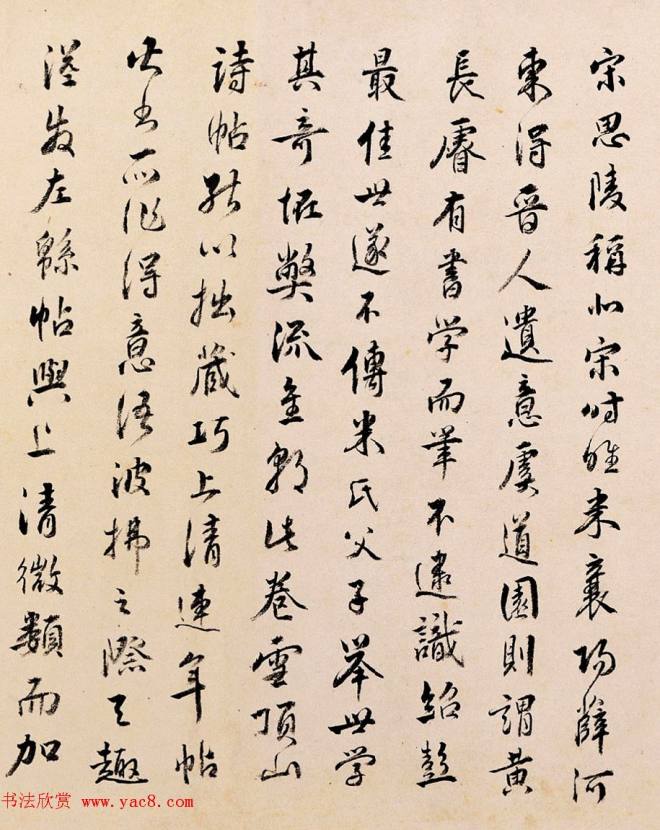 宋思陵稱北宋時唯米襄陽薛河
東得晉人遺意虞道園則謂黃
長睿有書学而筆不逮識紹彭
最佳世遂不傳米氏父子舉世学
其奇怪弊流金朝此卷雲頂山
詩帖能以拙藏巧上清連年帖
所作得意語波拂之際天趣
溢發左緜帖與上清微類而加
书法欣赏 www.yac8.com